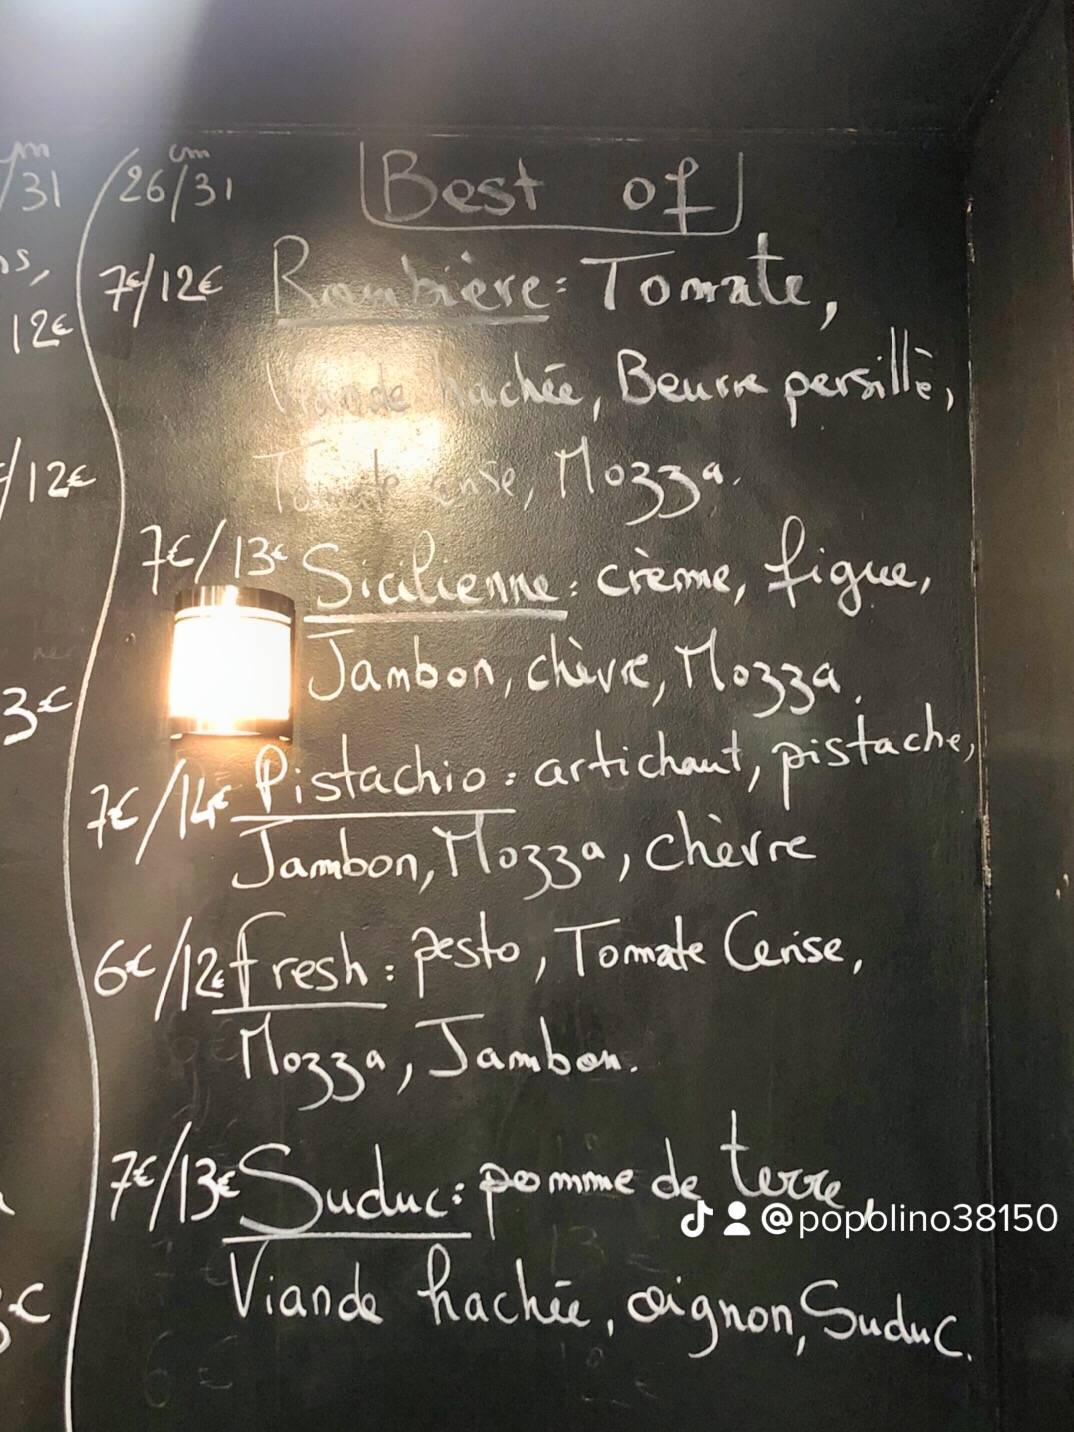 cm
/31
26/31 cm
Best of
ns,
7€/12€ Rambière: Tomate,
12€
Viande hachée, Beurre persillé,
/12€
Tomate cerise, Mozza.
7€/13€ Sicilienne: crème, figue,
Jambon, chèvre, Mozza.
3€
Pistachio: artichaut, pistache,
7€/14€
Jambon, Mozza, chèvre
6€/12€ fresh: pesto, Tomate Cerise,
Mozza, Jambon.
7€/13€ Suduc: pomme de terre,
@popolino38150
Viande hachée, oignon, Suduc.
3€